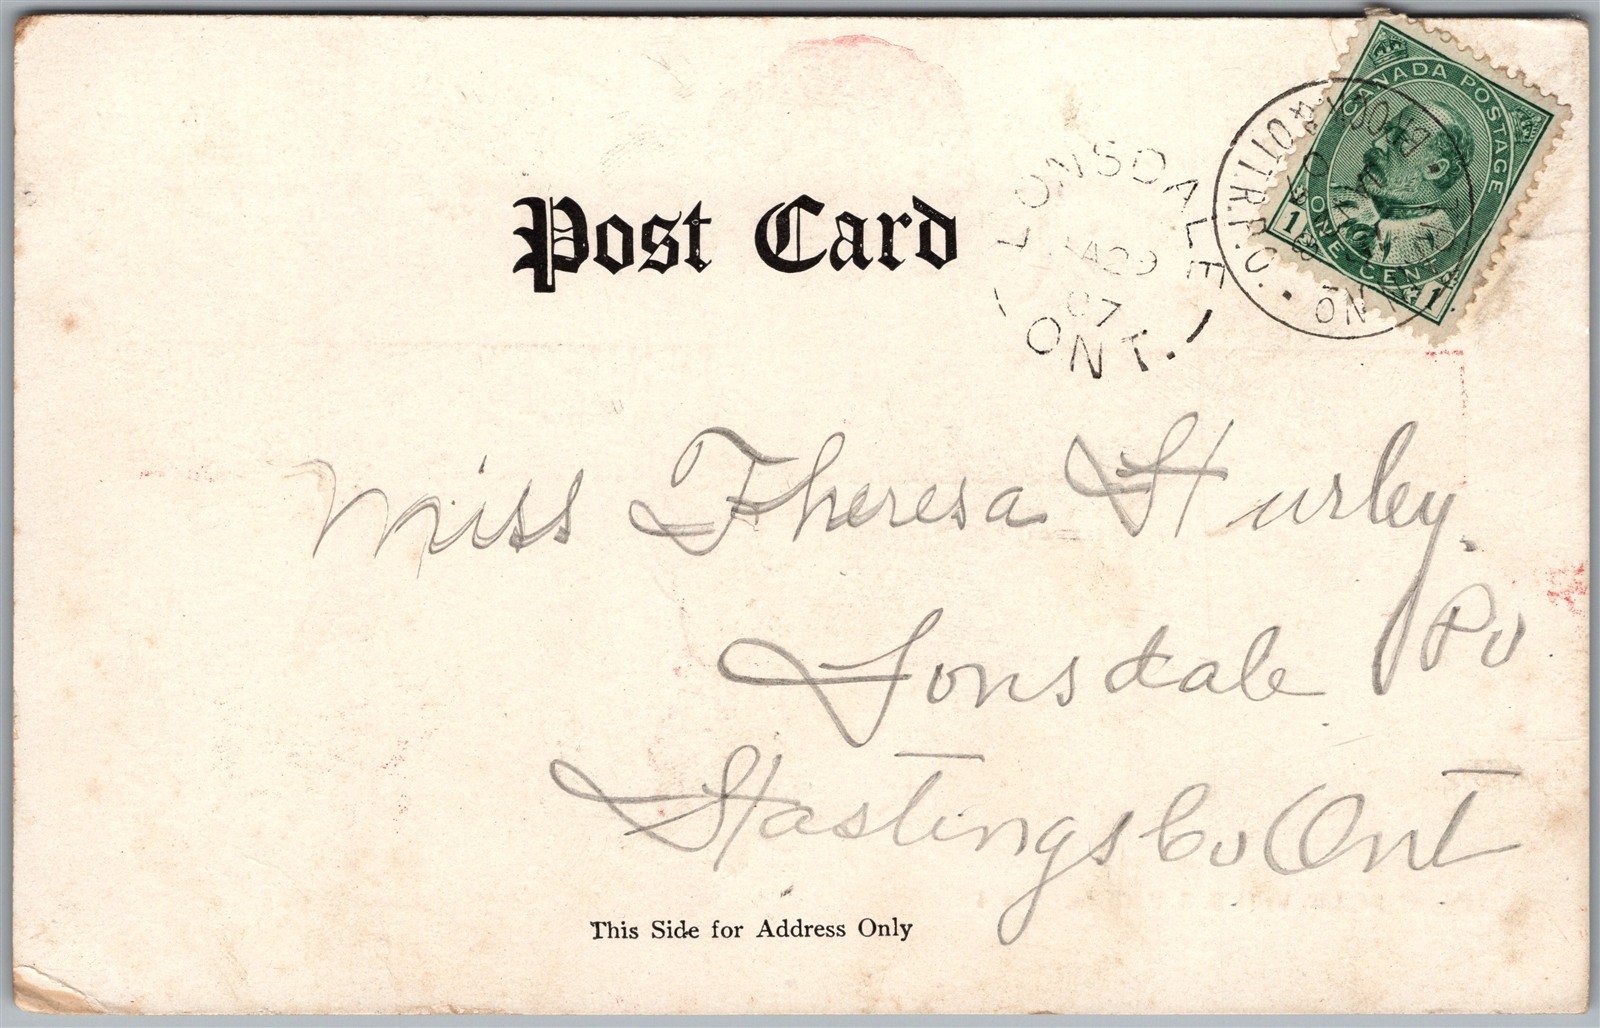 CANADA POSTAGE
1 ONE CENT 1
LONSDALE
09
07
ONT.
OTT. R.P.O.
NO
Post Card
Miss Theresa Hurley.
Lonsdale Po
Hastings Co Ont
This Side for Address Only